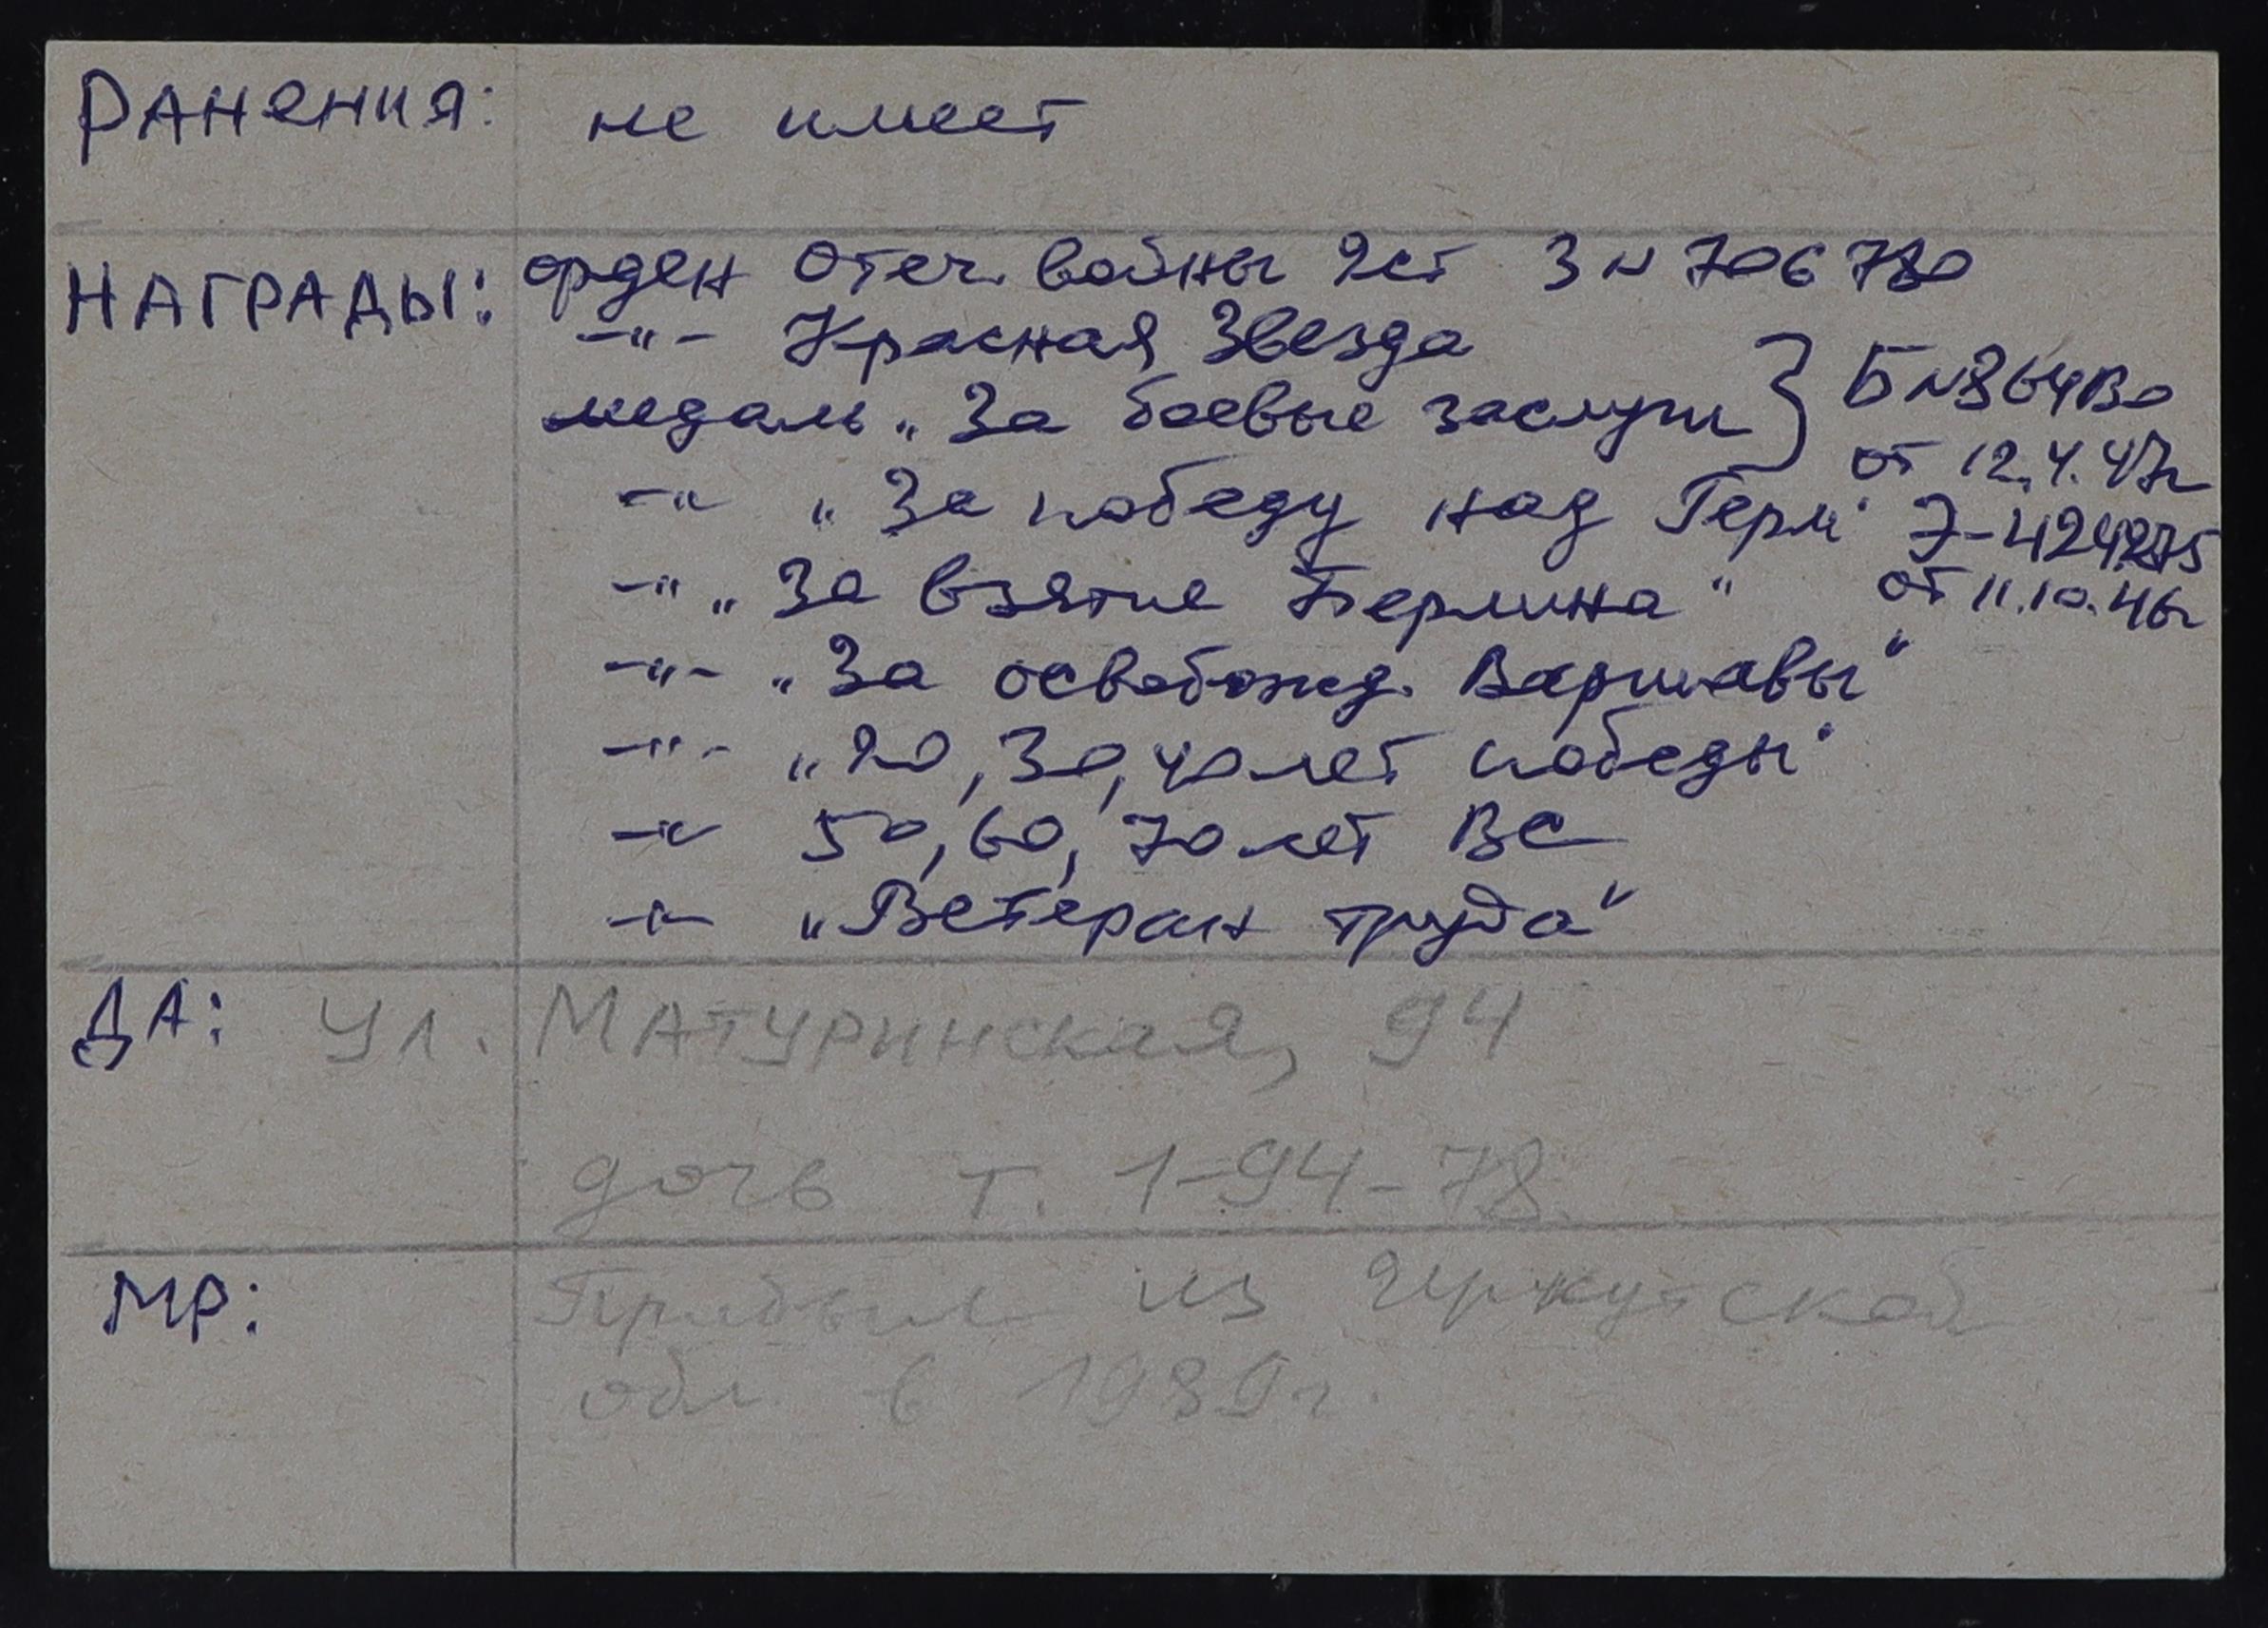 РАНЕНИЯ: не имеет
НАГРАДЫ: орден Отеч. войны 2ст З N 706780
-"- Красная Звезда
медаль „За боевые заслуги } Б N
от 12.4.47г
-"- „За победу над Герм" Э-424275
-"- „За взятие Берлина" от 11.10.46г
-"- „За освобожд. Варшавы"
-"- „20, 30, 40 лет победы"
-"- 50, 60, 70 лет ВС
-"- „Ветеран труда"
ДА: ул. МАТУРИНСКАЯ, 94
дочь т. 1-94-78
МР: Прибыл из Иркутской
обл. в 1989г.